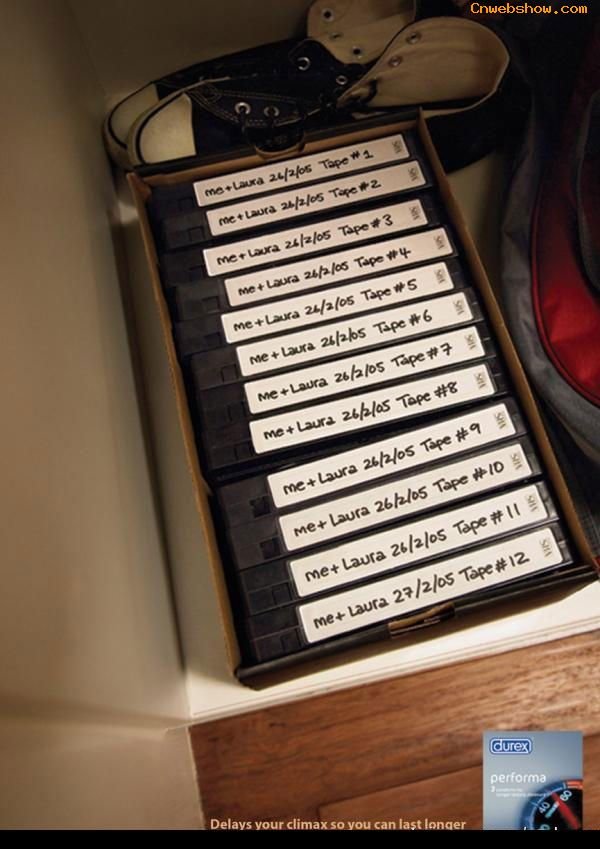 Cnwebshow.com
me + Laura 26/2/05 Tape #1 VHS
me + Laura 26/2/05 Tape #2 VHS
me + Laura 26/2/05 Tape #3 VHS
me + Laura 26/2/05 Tape #4 VHS
me + Laura 26/2/05 Tape #5 VHS
me + Laura 26/2/05 Tape #6 VHS
me + Laura 26/2/05 Tape #7 VHS
me + Laura 26/2/05 Tape #8 VHS
me + Laura 26/2/05 Tape #9 VHS
me + Laura 26/2/05 Tape #10 VHS
me + Laura 26/2/05 Tape #11 VHS
me + Laura 27/2/05 Tape #12 VHS
durex
performa
3
40
60
Delays your climax so you can last longer